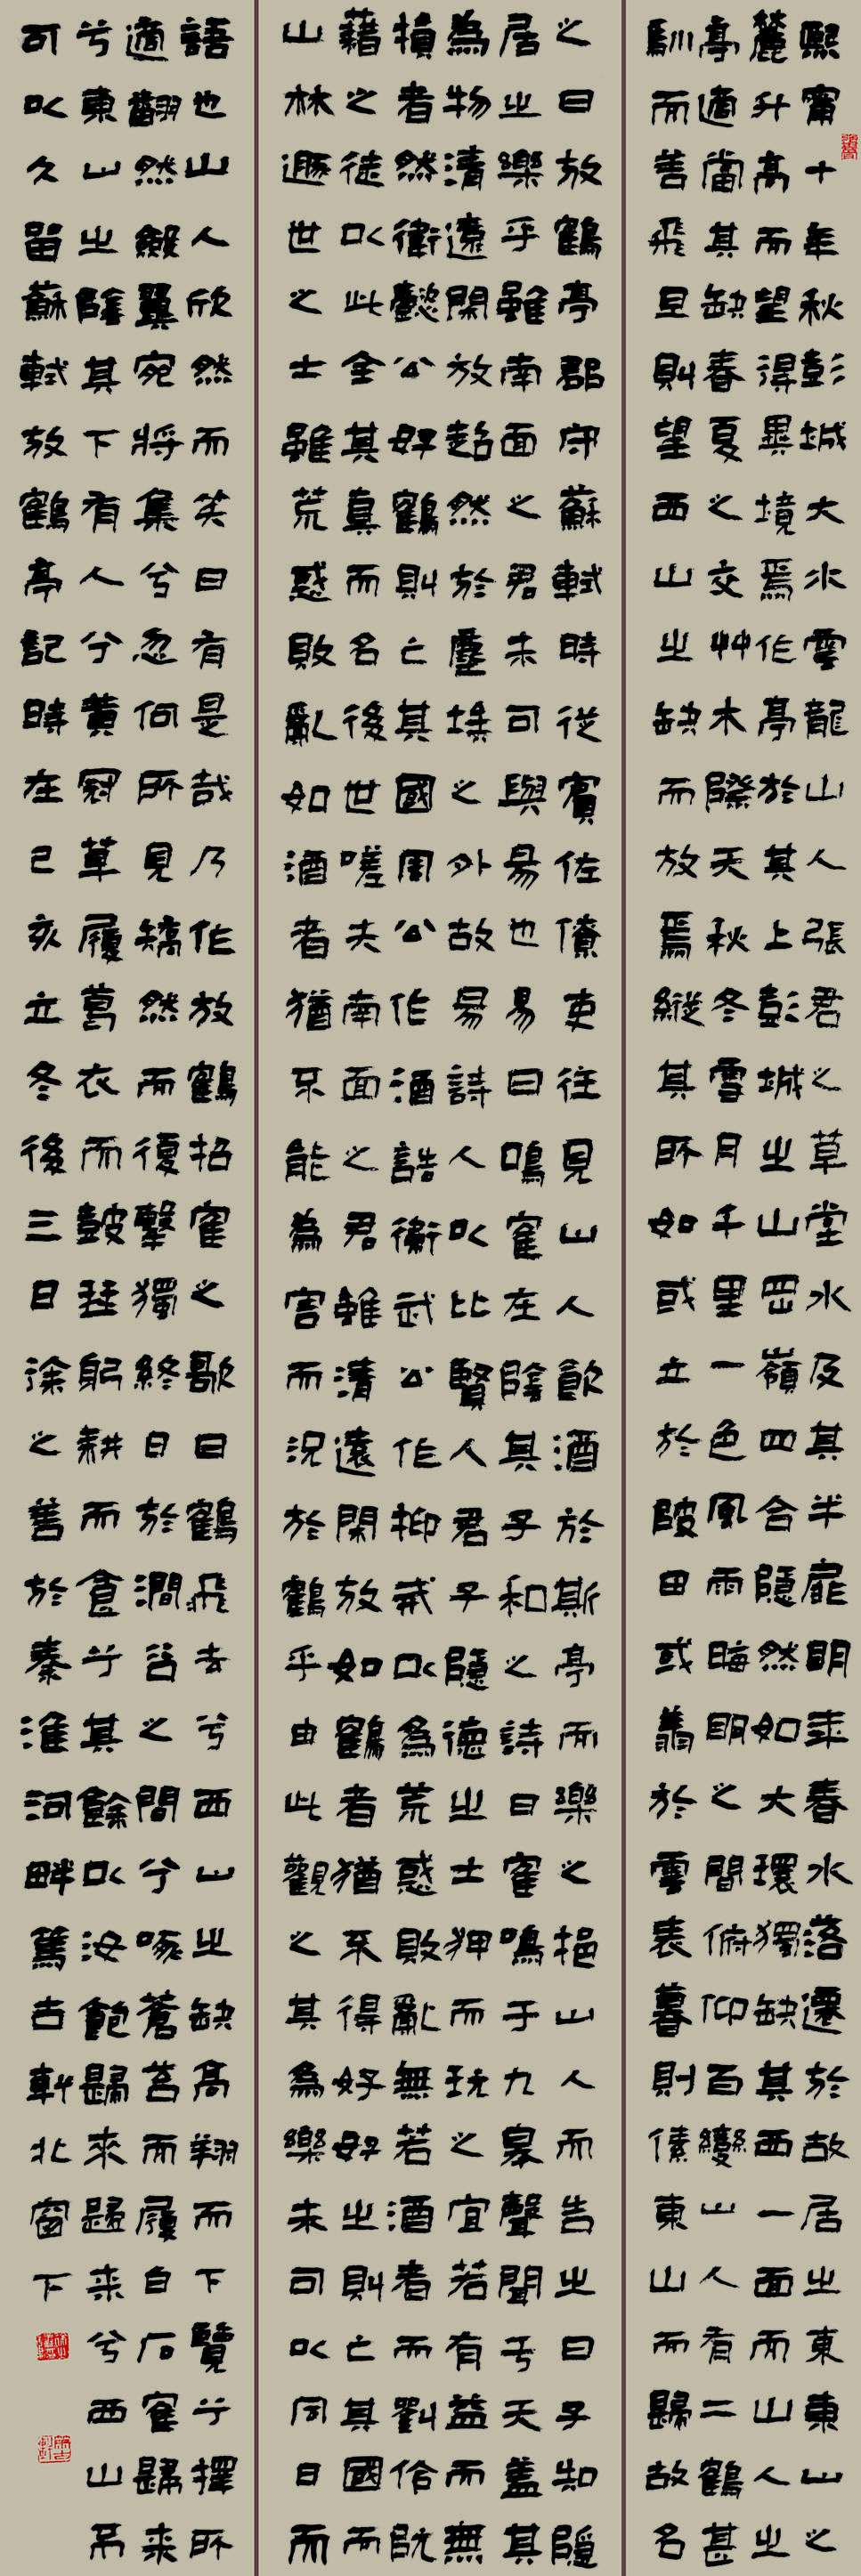 熙甯十年秋彭城大水雲龍山人張君之草堂水及其半扉明年春水落遷於故居之東東山之
麓升高而望得異境焉作亭於其上彭城之山岡嶺四合隱然如大環獨缺其西一面而山人之
亭適當其缺春夏之交艸木際天秋冬雪月千里一色風雨晦明之間俯仰百變山人有二鶴甚
馴而善飛旦則望西山之缺而放焉縱其所如或立於陂田或翥於雲表暮則傃東山而歸故名
之曰放鶴亭郡守蘇軾時從賓佐僚吏往見山人飲酒於斯亭而樂之挹山人而告之曰子知隱
居之樂乎雖南面之君未可與易也易曰鳴寉在陰其子和之詩曰寉鳴于九皋聲聞于天蓋其
為物清遠閑放超然於塵埃之外故易詩人以比賢人君子隱德之士狎而玩之宜若有益而無
損者然衛懿公好鶴則亡其國周公作酒誥衛武公作抑戒以為荒惑敗亂無若酒者而劉伶阮
藉之徒以此全其真而名後世嗟夫南面之君雖清遠閑放如鶴者猶不得好好之則亡其國而
山林遯世之士雖荒惑敗亂如酒者猶不能為害而況於鶴乎由此觀之其為樂未可以同日而
語也山人欣然而笑曰有是哉乃作放鶴招寉之歌曰鶴飛去兮西山之缺高翔而下覽兮擇所
適翻然斂翼宛將集兮忽何所見矯然而復擊獨終日於澗谷之間兮啄蒼苔而履白石寉歸来
兮東山之陰其下有人兮黃冠草履葛衣而鼓琴躬耕而食兮其餘以汝飽歸來歸来兮西山不
可以久留蘇軾放鶴亭記時在己亥立冬後三日徐之善於秦淮河畔篤古軒北窗下